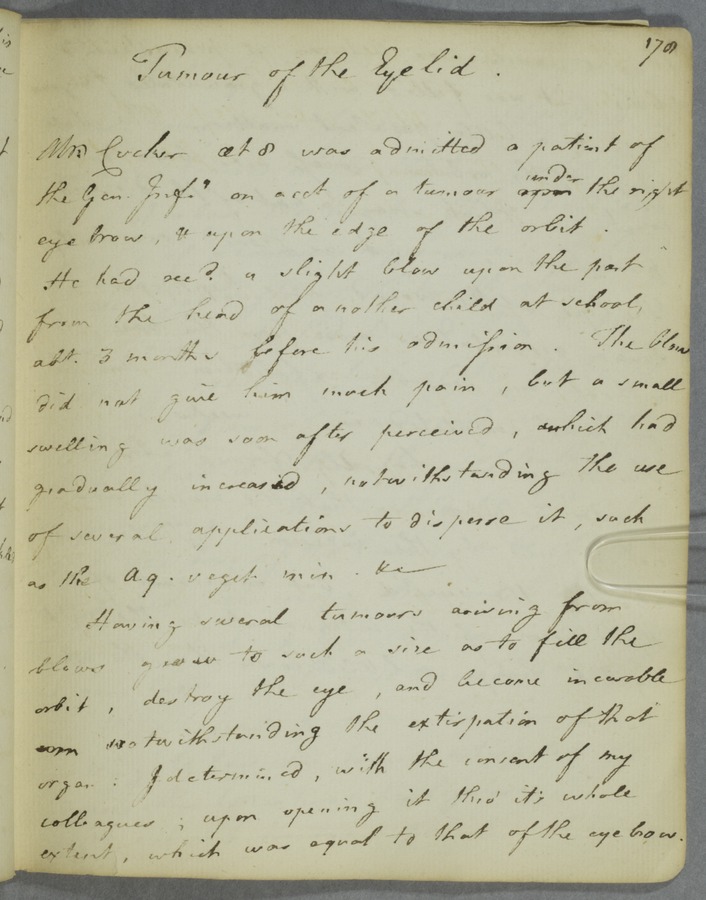 178
Tumour of the Eyelid.
Cocker æt 8 was admitted a patient of
the Gen. Infy on acct of a tumour upon under the right
eye brow, & upon the edge of the orbit.
He had recd. a slight blow upon the part
from the head of another child at school,
abt. 3 months before his admission. The blow
did not give him much pain, but a small
swelling was soon after perceived, which had
gradually increased, notwithstanding the use
of several applications to disperse it, such
as the aq. veget. min. &c
Having several tumours arising from
blows grow to such a size as to fill the
orbit, destroy the eye, and become incurable
notwithstanding the extirpation of that
organ: I determined, with the consent of my
colleagues; upon opening it thro' it's whole
extent, which was equal to that of the eye brow.